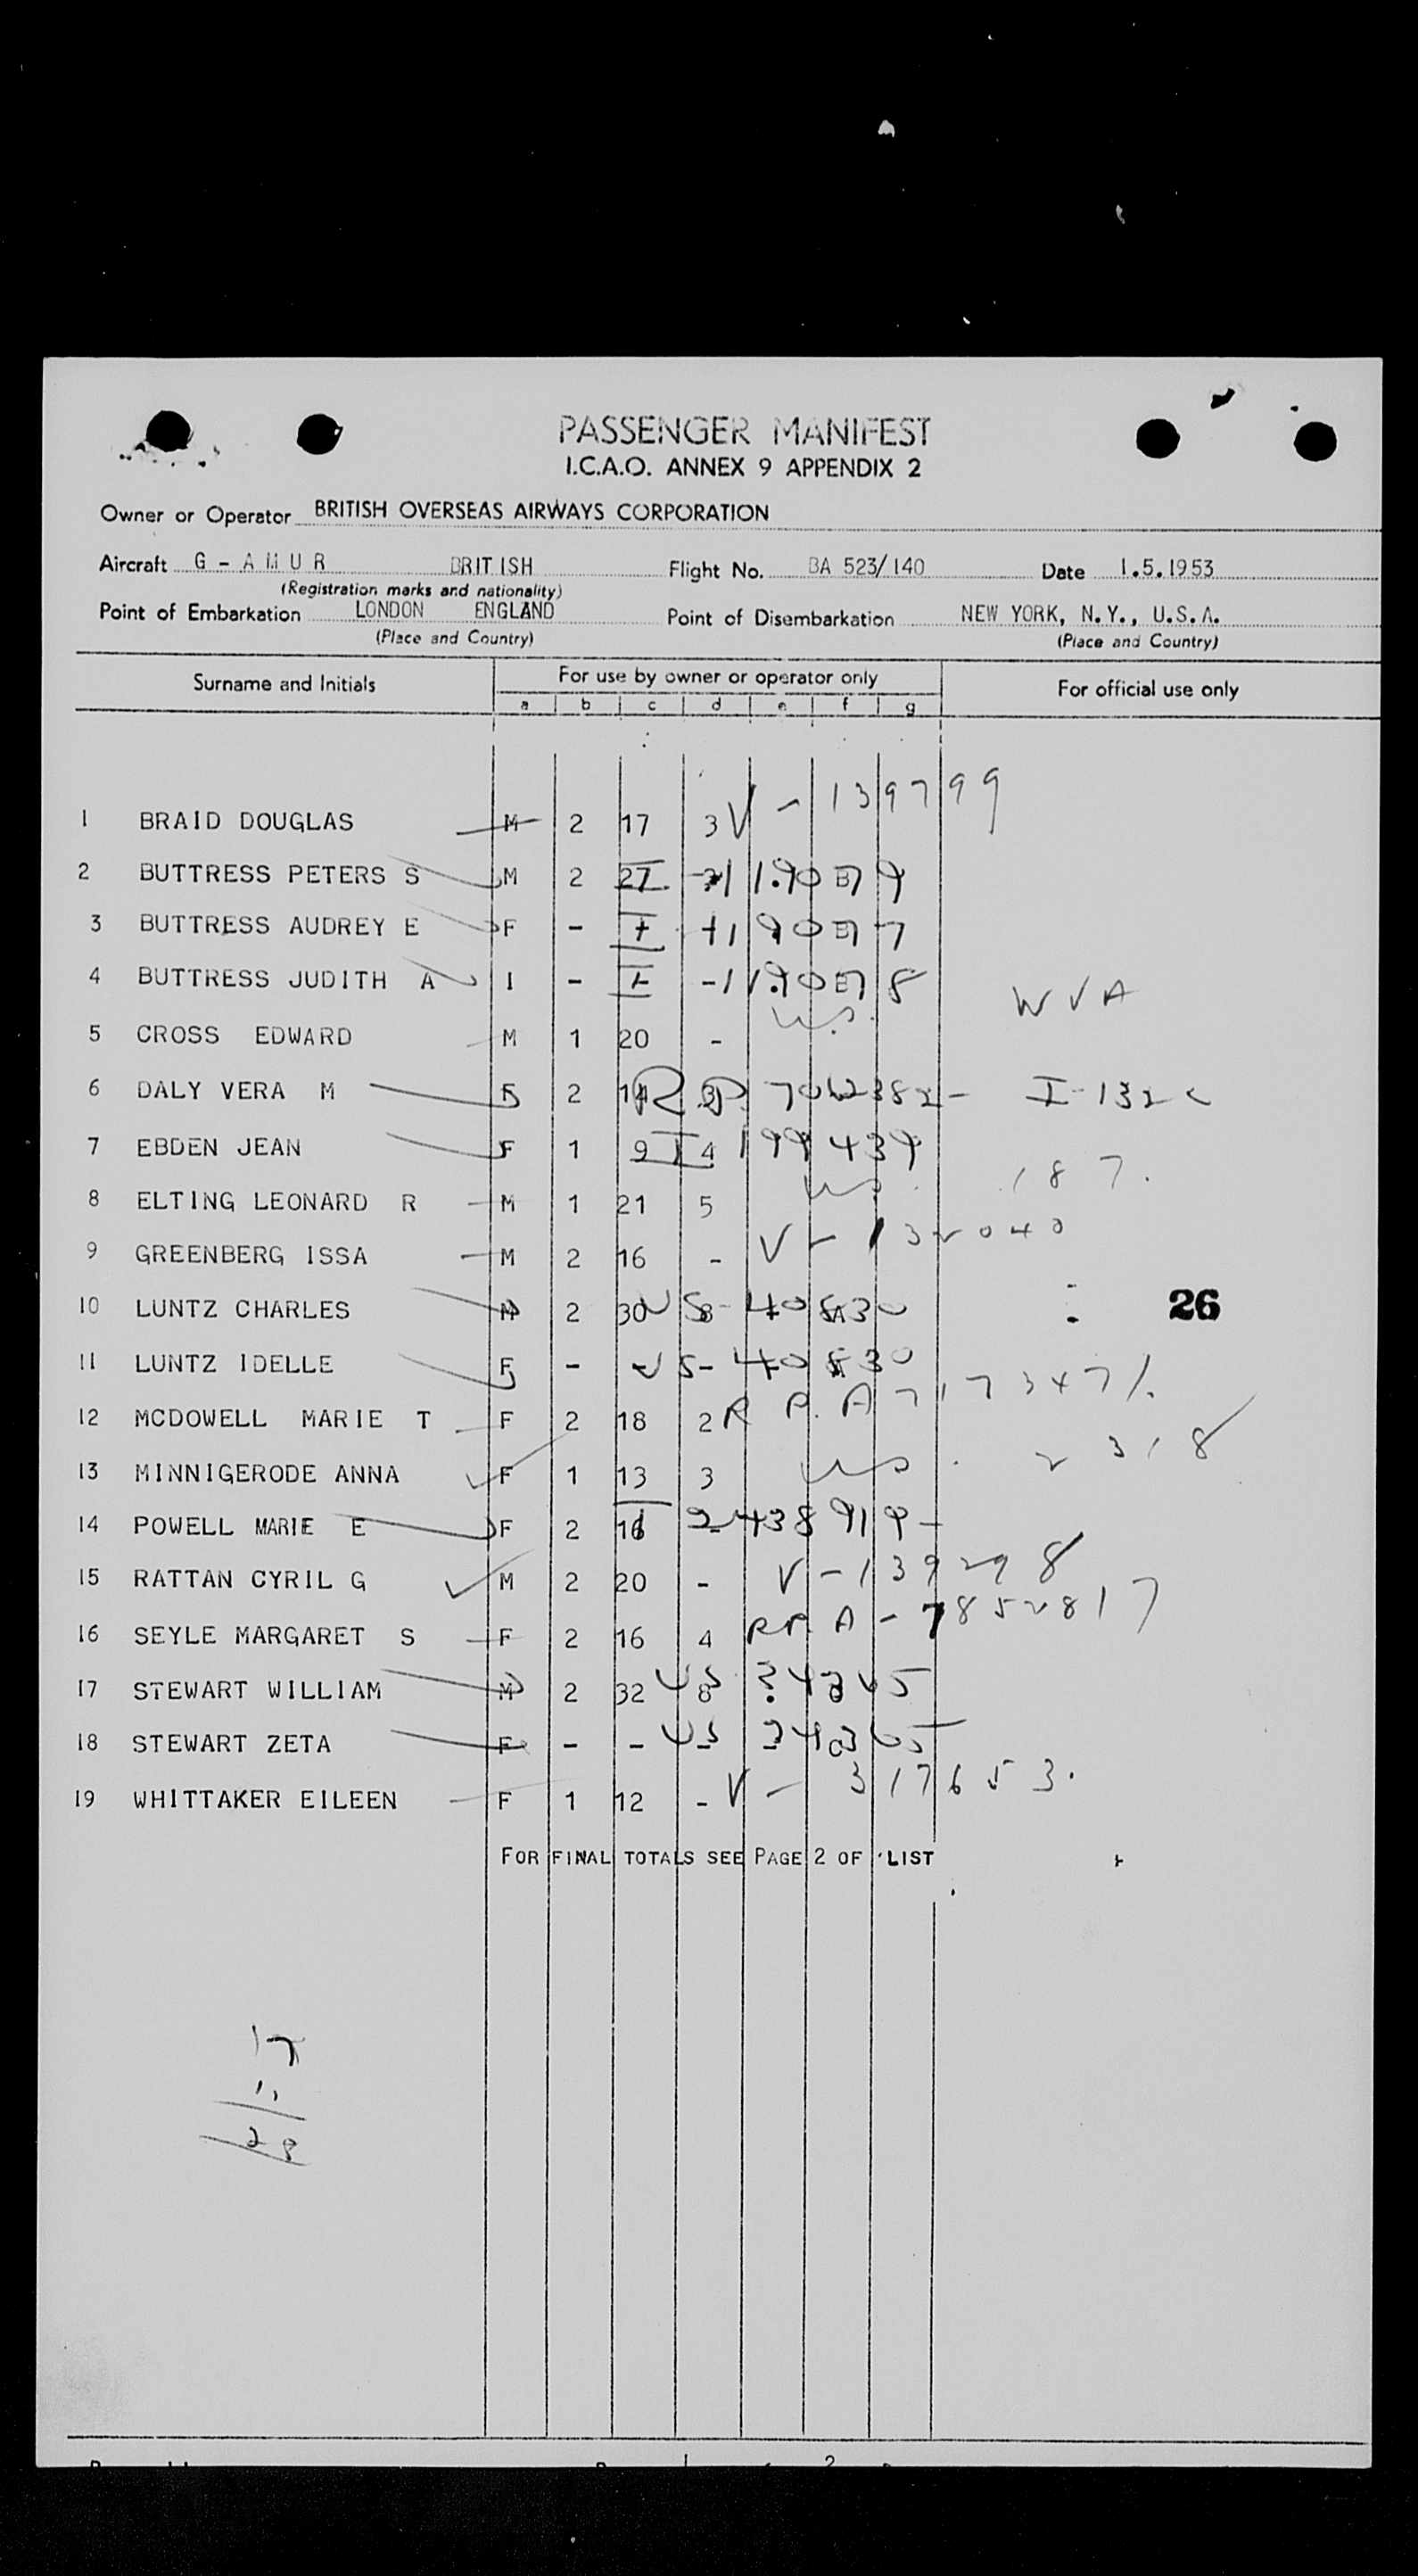 PASSENGER MANIFEST
I.C.A.O. ANNEX 9 APPENDIX 2
Owner or Operator BRITISH OVERSEAS AIRWAYS CORPORATION
Aircraft G - A M U R BRITISH Flight No. BA 523/140 Date 1.5.1953
(Registration marks and nationality)
Point of Embarkation LONDON ENGLAND Point of Disembarkation NEW YORK, N.Y., U.S.A.
(Place and Country) (Place and Country)
Surname and Initials For use by owner or operator only For official use only
a b c d e f g
1 BRAID DOUGLAS M 2 17 3 V - 139799
2 BUTTRESS PETERS S M 2 27
3 BUTTRESS AUDREY E F -
4 BUTTRESS JUDITH A I -
WVA
5 CROSS EDWARD M 1 20 -
6 DALY VERA M F 2 14 3
7 EBDEN JEAN F 1 9 4
187.
8 ELTING LEONARD R M 1 21 5
9 GREENBERG ISSA M 2 16 - V - 132040
10 LUNTZ CHARLES M 2 30 8 26
11 LUNTZ IDELLE F -
12 MCDOWELL MARIE T F 2 18 2
13 MINNIGERODE ANNA F 1 13 3 2318
14 POWELL MARIE E F 2 16
15 RATTAN CYRIL G M 2 20 - V - 139298
16 SEYLE MARGARET S F 2 16 4 7852817
17 STEWART WILLIAM M 2 32 8
18 STEWART ZETA F - -
19 WHITTAKER EILEEN F 1 12 - V - 317653.
FOR FINAL TOTALS SEE PAGE 2 OF LIST
17
11
28